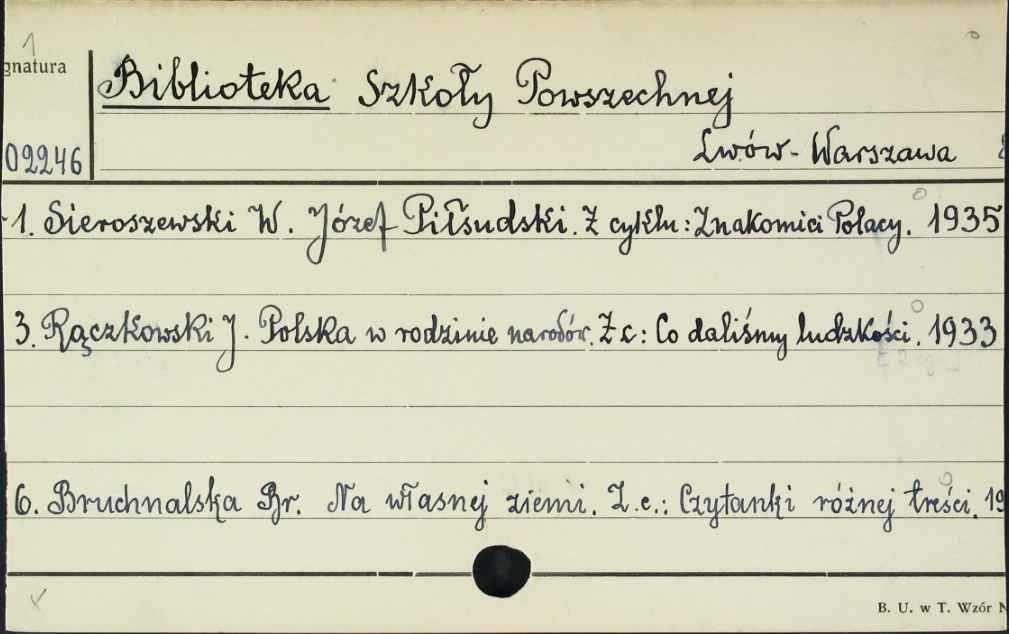 1
gnatura
Biblioteka Szkoły Powszechnej
02246
Lwów - Warszawa
1. Sieroszewski W. Józef Piłsudski. Z cyklu: Znakomici Polacy. 1935
3. Rączkowski J. Polska w rodzinie narodów. Z c: Co daliśmy ludzkości. 1933
6. Bruchnalska Br. Na własnej ziemi. Z.c.: Czytanki różnej treści. 19
B. U. w T. Wzór N